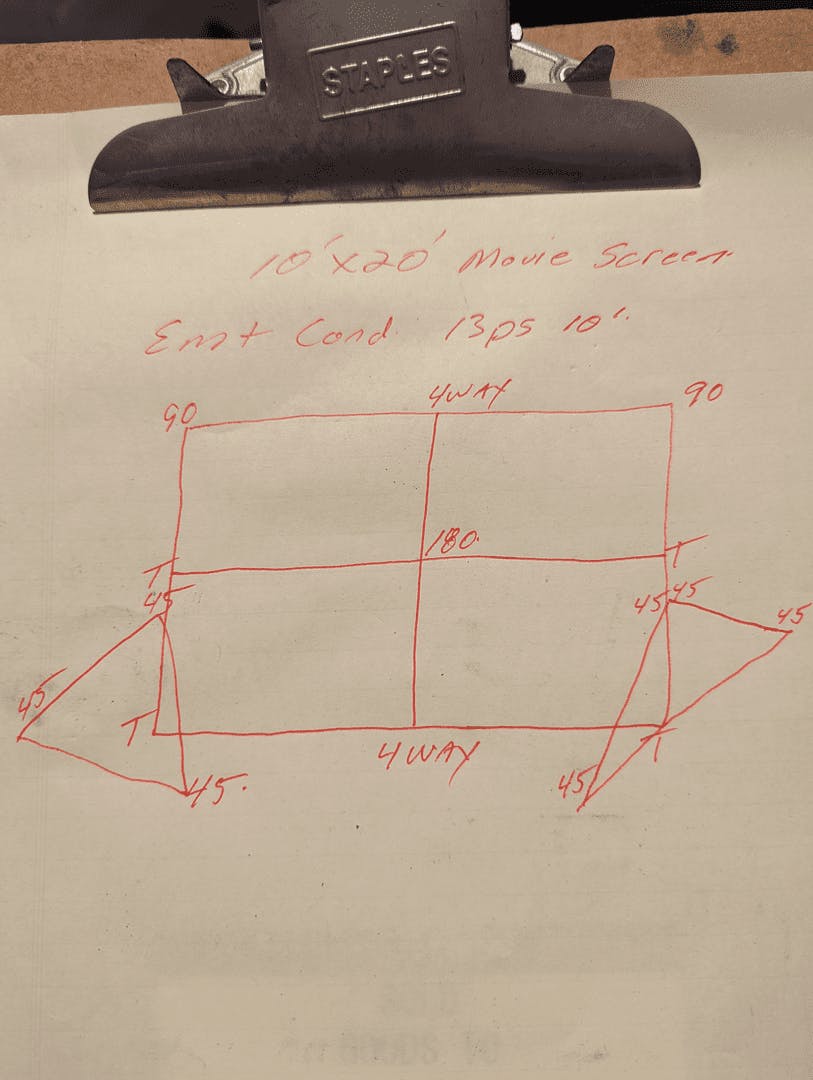 STAPLES
10' X 20' Movie Screen
Emt Cond. 13ps 10'.
90 4WAY 90
180.
T T
45 45 45
45
45
T T
4WAY
45. 45